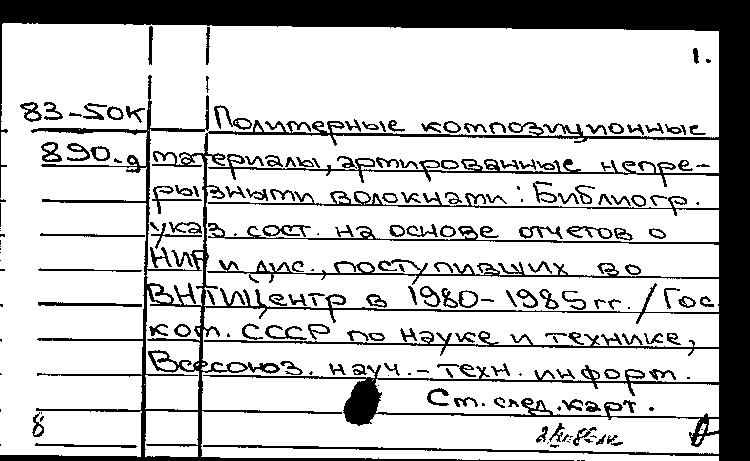 1.
83-50К
890.д
Полимерные композиционные
материалы, армированные непре-
рывными волокнами : Библиогр.
указ. сост. на основе отчетов о
НИР и дис., поступивших во
ВНТИЦентр в 1980-1985гг. / Гос.
ком. СССР по науке и технике,
Всесоюз. науч.-техн. информ.
См. след. карт.
8